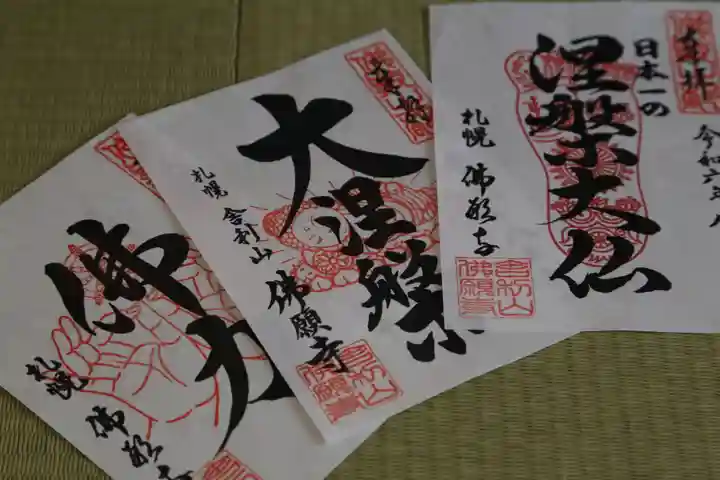 奉拝
日本一の
涅槃大仏
札幌 佛願寺
令和六年
舎利山
佛願寺
奉拝
大涅槃
札幌 舎利山 佛願寺
舎利山
佛願寺
佛力
札幌 佛願寺